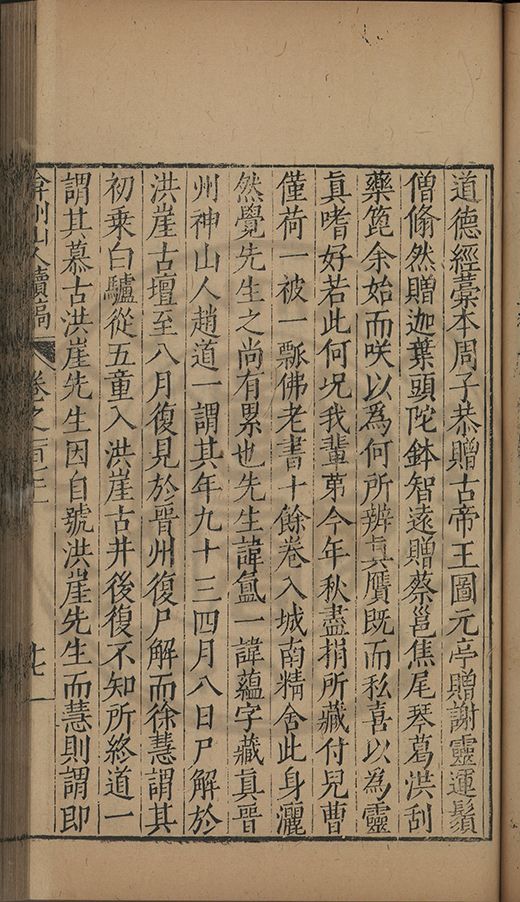 道德經藁本周子恭贈古帝王圖元亭贈謝靈運鬚
僧翛然贈迦葉頭陀鉢智遠贈蔡邕焦尾琴葛洪刮
藥篦余始而咲以為何所辨眞贋既而私喜以為靈
眞嗜好若此何況我輩苐今年秋盡捐所藏付兒曹
僅荷一被一瓢佛老書十餘卷入城南精舍此身灑
然覺先生之尚有累也先生諱氳一諱蘊字藏眞晉
州神山人趙道一謂其年九十三四月八日尸解於
洪崖古壇至八月復見於晉州復尸解而徐慧謂其
初乗白驢從五童入洪崖古井後復不知所終道一
謂其慕古洪崖先生因自號洪崖先生而慧則謂即
弇州山人續稿 卷之一百 七